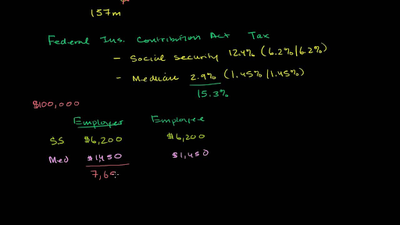 157m
Federal Ins. Contribution Act Tax
- Social security 12.4% (6.2%/6.2%)
- Medicare 2.9% (1.45%/1.45%)
15.3%
$100,000
Employer Employee
SS $6,200 $6,200
Med $1,450 $1,450
7,65